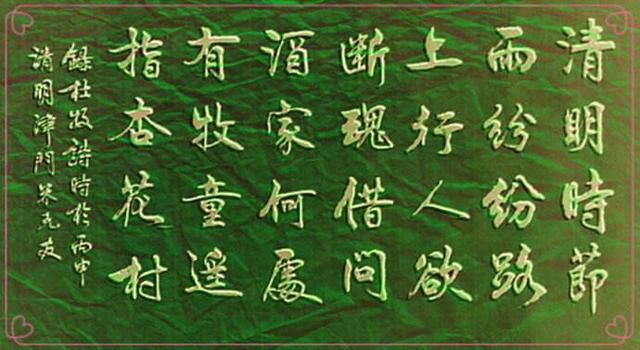 清明時節
雨紛紛路
上行人欲
断魂借問
酒家何處
有牧童遥
指杏花村
錄杜牧詩時於丙申
清明津門